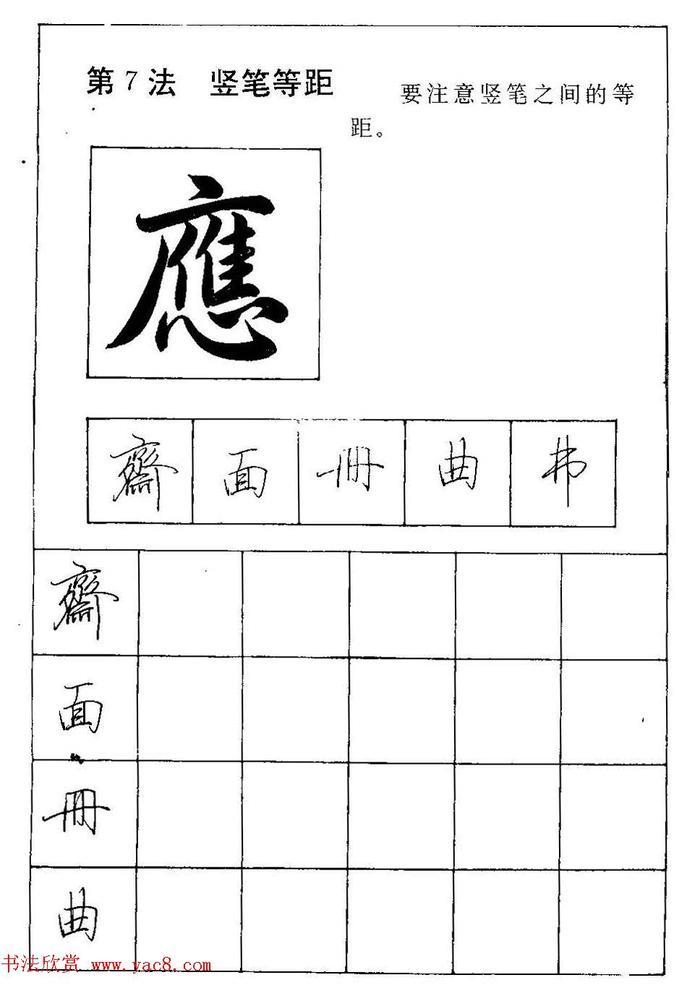 第7法 竖笔等距
要注意竖笔之间的等
距。
應
齋 面 冊 曲
齋
面
冊
曲
书法欣赏 www.yac8.com